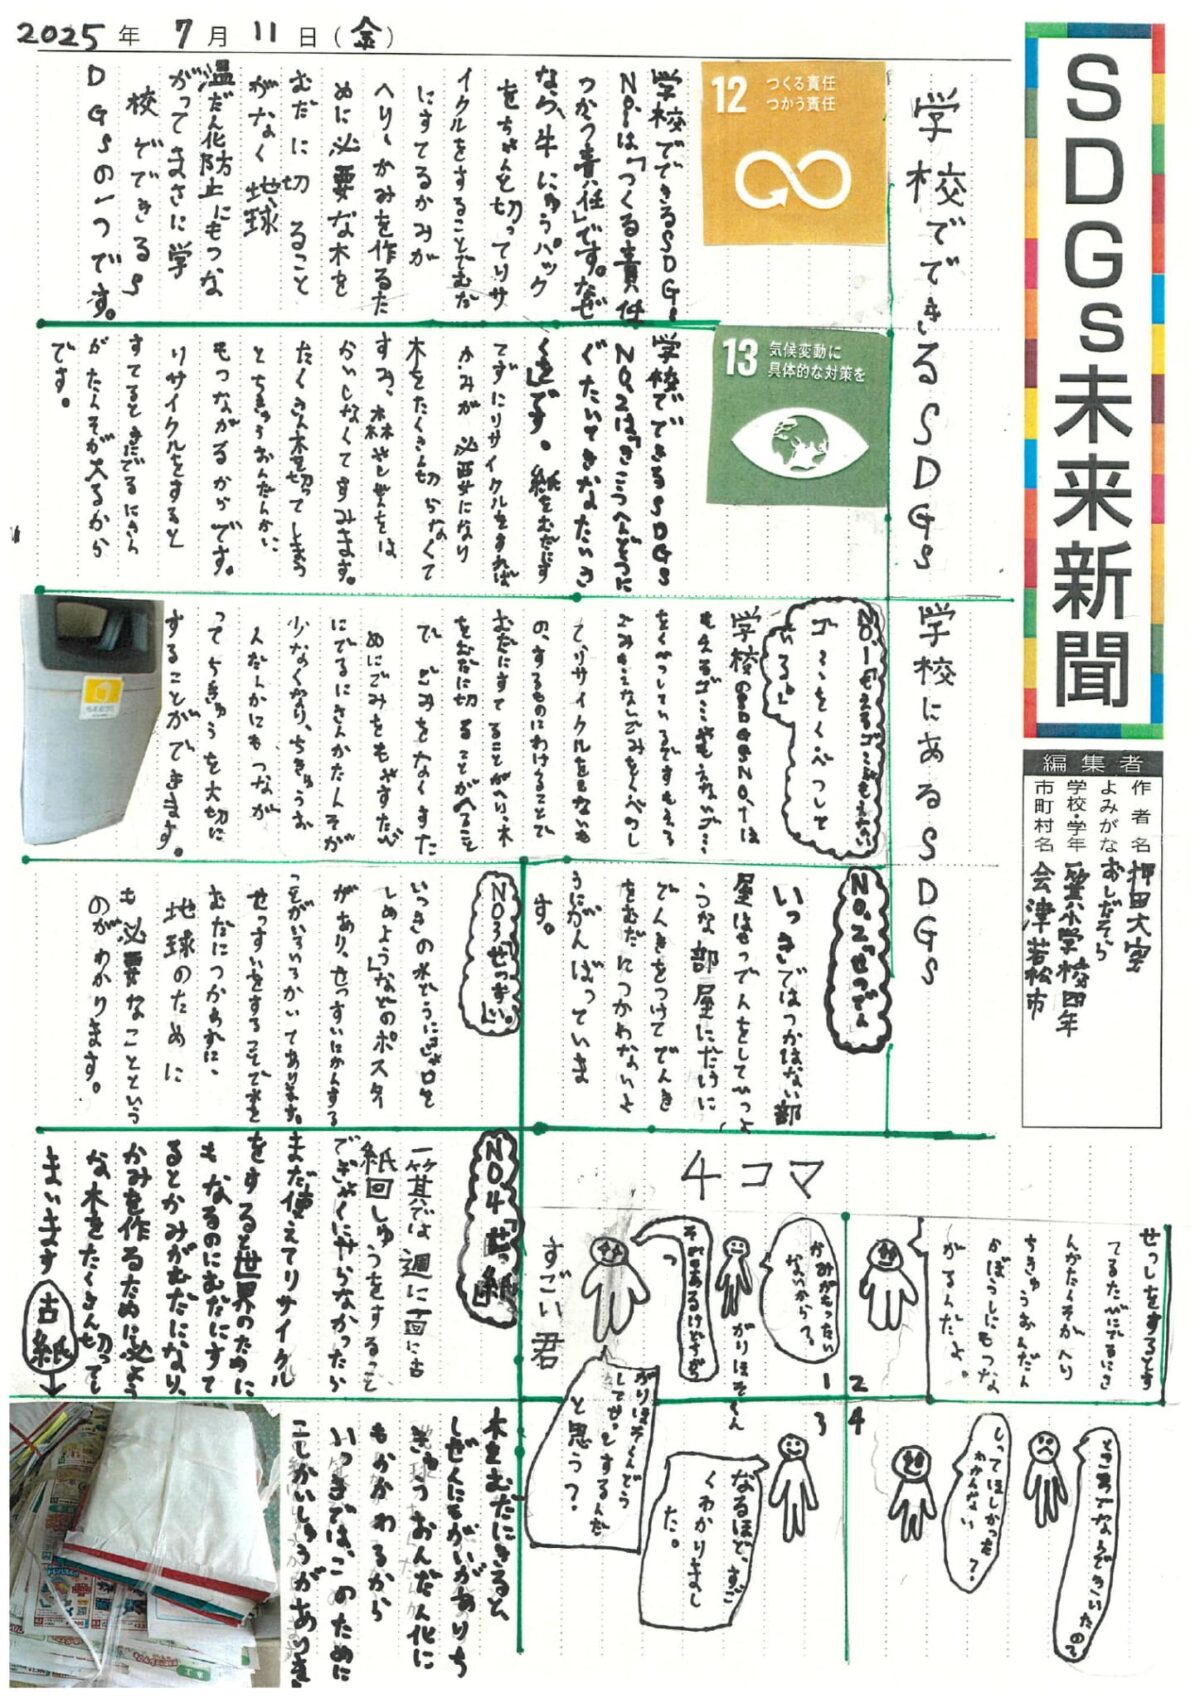 2025年 7月 11日(金)
SDGs未来新聞
編集者
作者名 押田大空
よみがな おしだそら
学校・学年 一箕小学校四年
市町村名 会津若松市
学校でできるSDGs
12 つくる責任
つかう責任
学校でできるSDGs
NO.1は「つくる責任
つかう責任」です。なぜ
なら、牛にゅうパック
をちゃんと切ってリサ
イクルをすることでむだ
にすてるかみが
へり、かみを作るた
めに必要な木を
むだに切ること
がなく地球
温だん化防止にもつな
がってまさに学
校でできるS
DGsの一つです。
13 気候変動に
具体的な対策を
学校でできるSDGs
NO.2は「きこうへんどうに
ぐたいてきなたいさ
く」です。紙をむだにす
てずにリサイクルをすれば
かみが必要になり
木をたくさん切らなくて
すみ、森やしぜんをは
かいしなくてすみます。
たくさん木を切ってしまう
とちきゅうおんだんかに
もつながるからです。
リサイクルをすると
すてるときにでるにさん
かたんそがへるから
です。
学校にあるSDGs
NO.1「もえるゴミともえない
ゴミをくべつして
いる」
学校のSDGsNO.1は
もえるゴミともえないゴミ
をくべつしているですもえる
ごみもえないごみをくべつし
てリサイクルをするもの
の、するものにわけることで
むだにすてることがへり、木
をむだに切ることがへること
で ごみをなくすた
めにごみをもやすたび
にでるにさんかたんそが
少なくなり、ちきゅうお
んだんかにもつなが
ってちきゅうを大切に
することができます。
NO.2「せつでん」
いっきではつかはない部
屋はせつでんをしていつよ
うな部屋にだけに
でんきをつけてでんき
をむだにつかわないよ
うにがんばっていま
す。
NO.3「せっすい」
いっきの水どうにはじゃ口を
しめようなどのポスタ
ーがあり、せっすいにかんする
ことがいろいろかいてあります。
せっすいをすることで水を
むだにつかわずに、
地球のために
も必要なことという
のがわかります。
NO.4「古紙」
一箕では週に一回に古
紙回しゅうをすること
でぎゃくにやらなかったら
まだ使えてリサイクル
をすると世界のために
もなるのにむだにすて
るとかみがむだになり、
かみを作るために必よう
な木をたくさん切ってし
まいます
古紙
木をむだにきると
しぜんにもがいがありち
きゅうおんだん化に
もかかわるから
いっきではこのために
こしかいしゅうがあります
4コマ
1
かみがもったい
ないから?
がりほそくん
それもあるけどちが
う
すごい君
2
せっしをするとす
てるたびにでるにさ
んかたんそがへり
ちきゅうおんだん
かぼうしにもつな
がるんだよ。
3
がりほそくんどう
してせっしするんだ
と思う?
なるほど、すご
くわかりまし
た。
4
ところでなんできいたの?
しってほしかった
わかんない
?